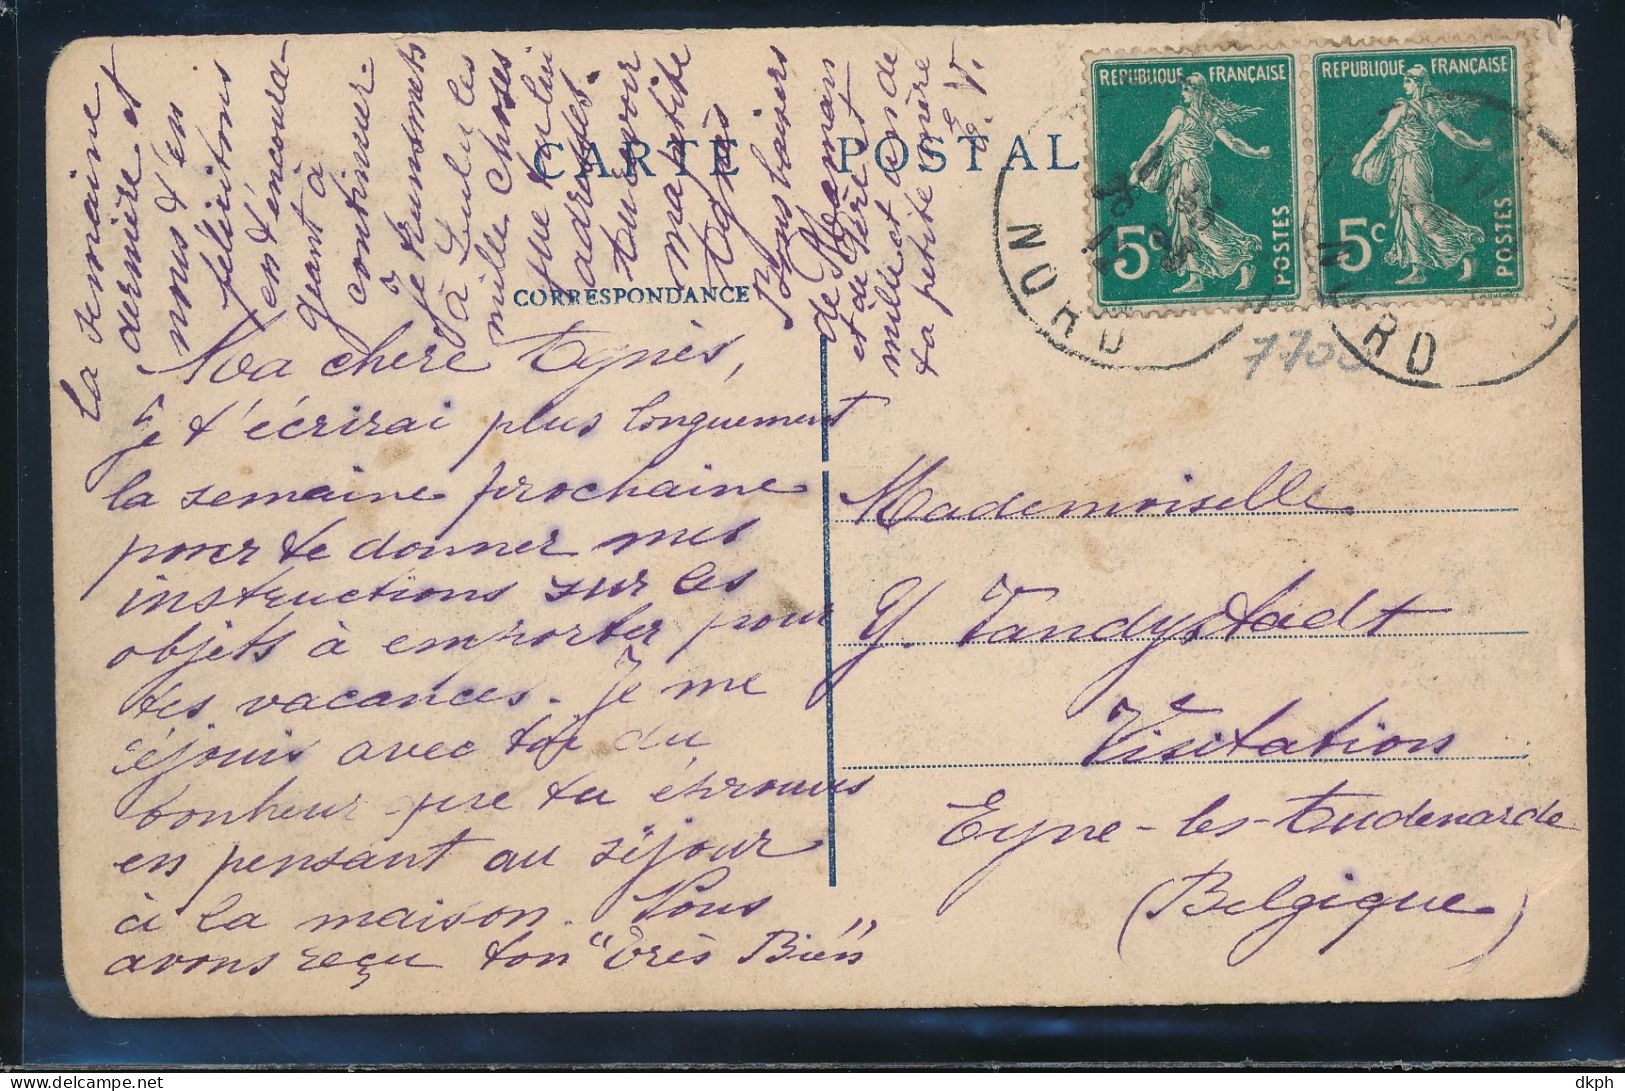 CARTE POSTALE
CORRESPONDANCE
REPUBLIQUE FRANÇAISE
5c
POSTES
REPUBLIQUE FRANÇAISE
5c
POSTES
NORD
NORD
Ma chère Agnès,
je t'écrirai plus longuement
la semaine prochaine
pour te donner mes
instructions sur les
objets à emporter pour
tes vacances. Je me
réjouis avec toi du
bonheur que tu éprouves
en pensant au séjour
à la maison. Nous
avons reçu ton "Très Bien"
la semaine
dernière et
nous t'en
félicitons
en t'encoura-
geant à
continuer.
je transmets
à Lulu les
mille choses
que tu lui
adresses.
Au revoir
ma petite
Agnès
Bons baisers
de Maman
et de Père et
mille et un de
ta petite mère
V.
Mademoiselle
Y. Vandystadt
Visitation
Eyne-les-Audenarde
(Belgique)
dkph
delcampe.net